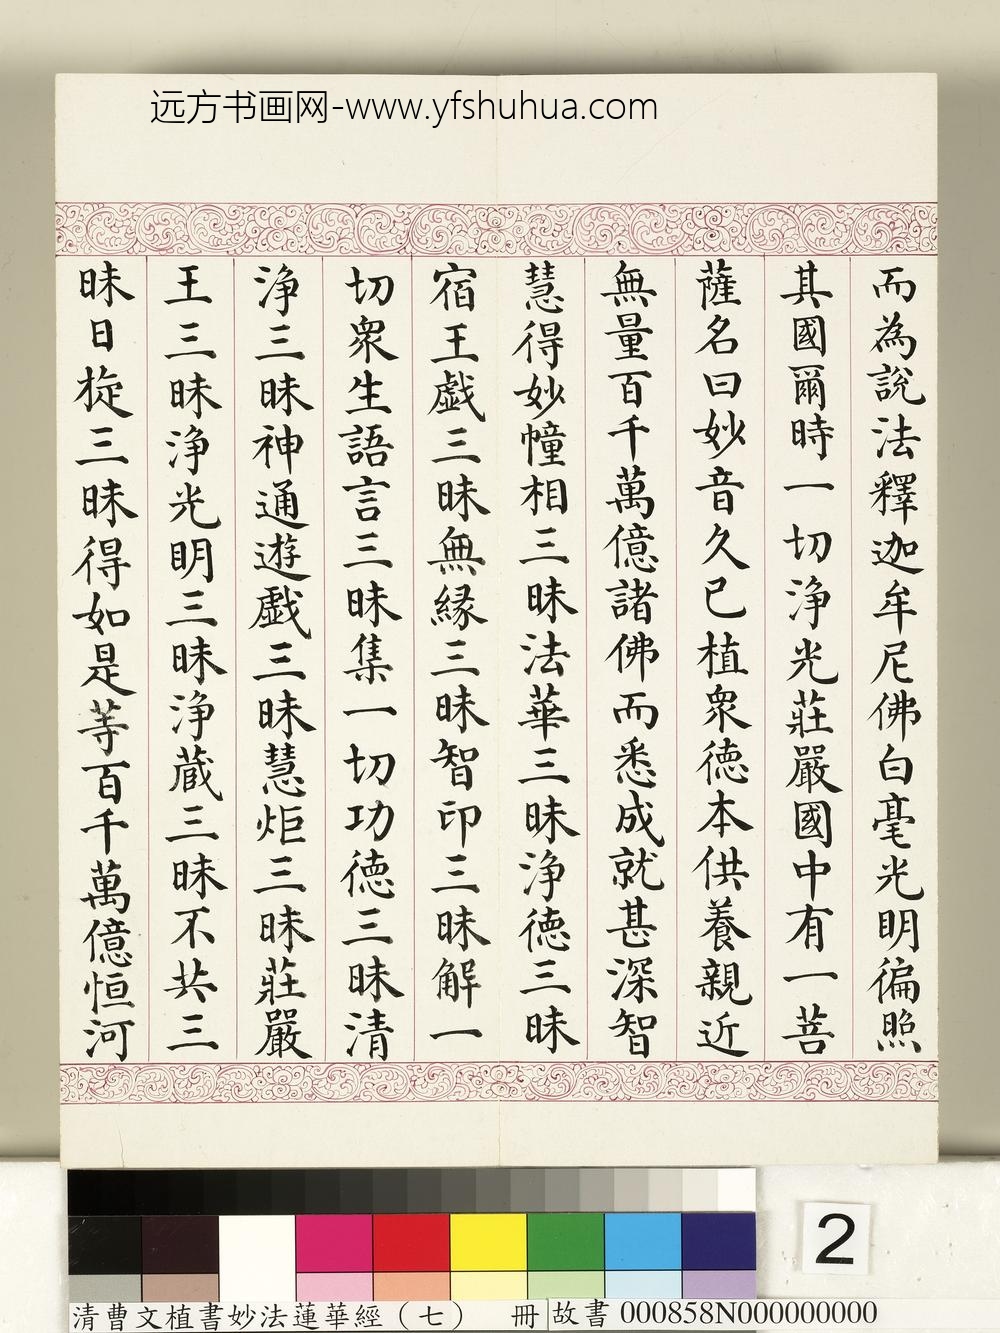 远方书画网-www.yfshuhua.com
而為說法釋迦牟尼佛白毫光明徧照
其國爾時一切淨光莊嚴國中有一菩
薩名曰妙音久已植衆德本供養親近
無量百千萬億諸佛而悉成就甚深智
慧得妙幢相三昧法華三昧淨德三昧
宿王戲三昧無緣三昧智印三昧解一
切衆生語言三昧集一切功德三昧清
淨三昧神通遊戲三昧慧炬三昧莊嚴
王三昧淨光明三昧淨藏三昧不共三
昧日旋三昧得如是等百千萬億恒河
2
清曹文植書妙法蓮華經（七） 冊
故書 000858N000000000